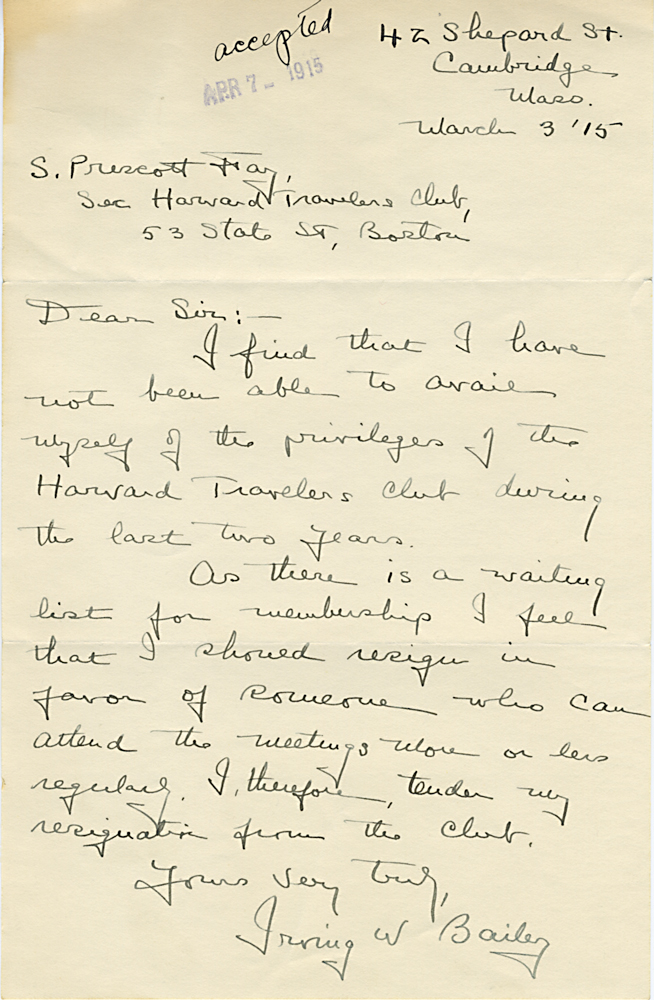 accepted
APR 7 - 1915
42 Shepard St.
Cambridge
Mass.
March 3 '15
S. Prescott Fay,
Sec Harvard Travelers Club,
53 State St, Boston
Dear Sir:-
I find that I have
not been able to avail
myself of the privileges of the
Harvard Travelers Club during
the last two years.
As there is a waiting
list for membership I feel
that I should resign in
favor of someone who can
attend the meetings more or less
regularly. I, therefore, tender my
resignation from the Club.
Yours very truly,
Irving W Bailey